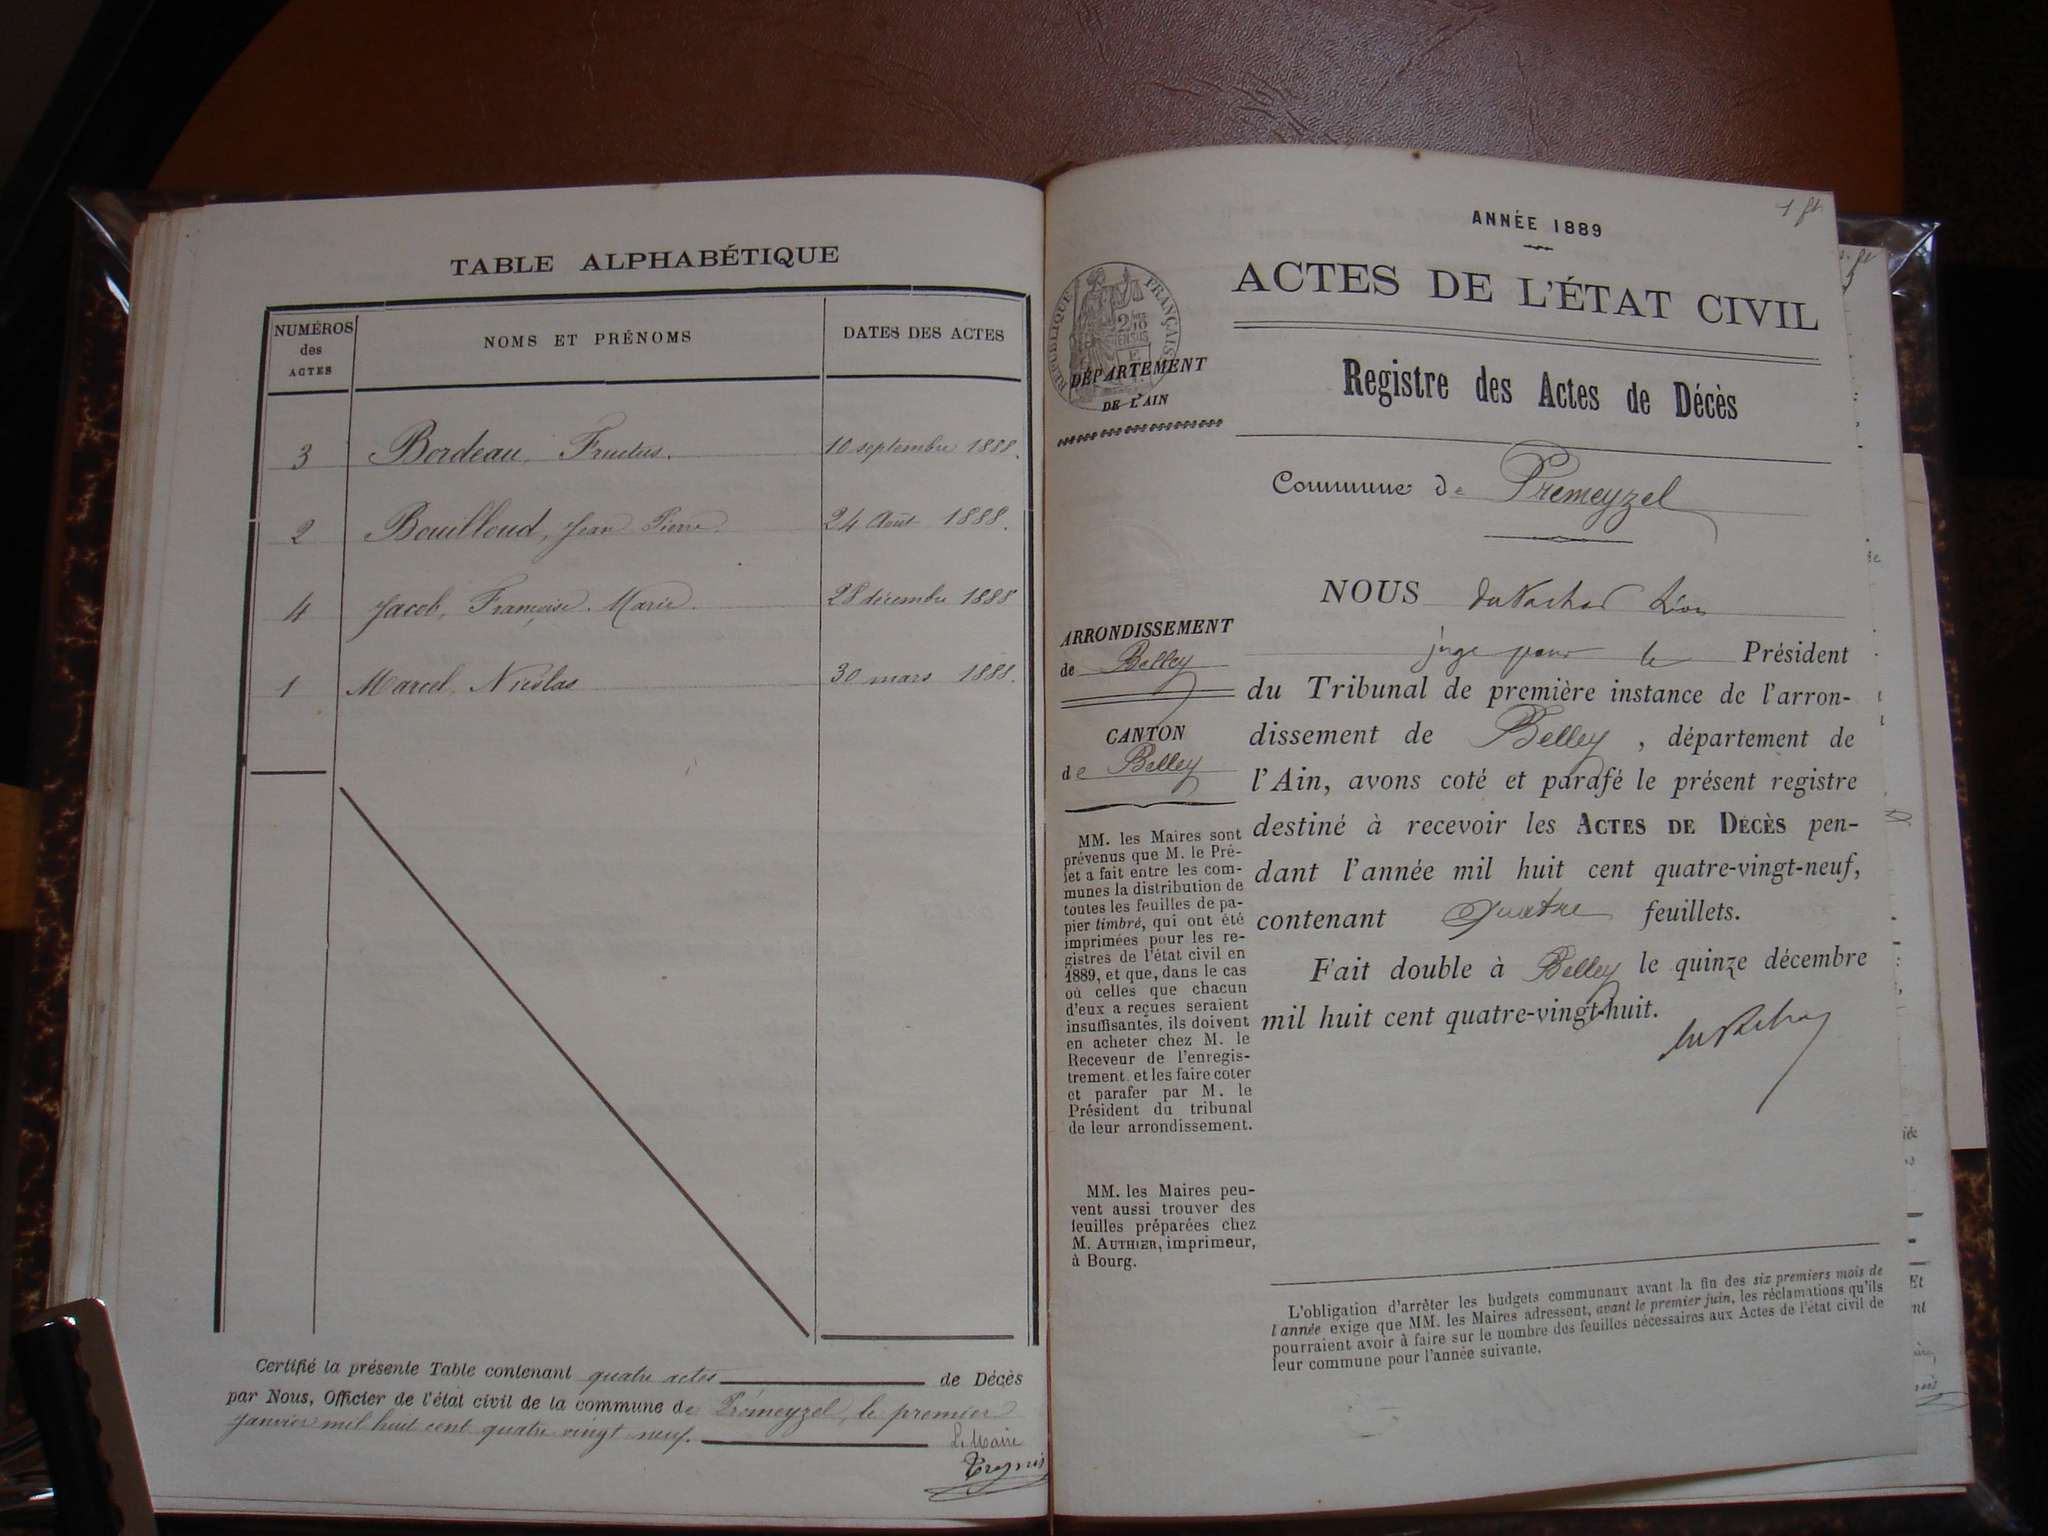 TABLE ALPHABÉTIQUE
NUMÉROS
des
ACTES
NOMS ET PRÉNOMS
DATES DES ACTES
3 Bordeau, Fructus. 10 septembre 1888.
2 Bouilloud, Jean Pierre 24 Août 1888.
4 Jacob, Françoise Marie. 28 décembre 1888
1 Marcel, Nicolas 30 mars 1888.
Certifié la présente Table contenant quatre actes de Décès
par Nous, Officier de l'état civil de la commune de Prémeyzel, le premier
Janvier mil huit cent quatre vingt neuf.
Le Maire
1 ft.
ANNÉE 1889
ACTES DE L'ÉTAT CIVIL
RÉPUBLIQUE FRANÇAISE
DÉPARTEMENT
DE L'AIN
Registre des Actes de Décès
Commune de Prémeyzel
ARRONDISSEMENT
de Belley
CANTON
de Belley
MM. les Maires sont
prévenus que M. le Pré-
fet a fait entre les com-
munes la distribution de
toutes les feuilles de pa-
pier timbré, qui ont été
imprimées pour les re-
gistres de l'état civil en
1889, et que, dans le cas
où celles que chacun
d'eux a reçues seraient
insuffisantes, ils doivent
en acheter chez M. le
Receveur de l'enregis-
trement et les faire coter
et parafer par M. le
Président du tribunal
de leur arrondissement.
MM. les Maires peu-
vent aussi trouver des
feuilles préparées chez
M. AUTHIER, imprimeur,
à Bourg.
NOUS Léon
juge pour le Président
du Tribunal de première instance de l'arron-
dissement de Belley, département de
l'Ain, avons coté et parafé le présent registre
destiné à recevoir les ACTES DE DÉCÈS pen-
dant l'année mil huit cent quatre-vingt-neuf,
contenant quatre feuillets.
Fait double à Belley le quinze décembre
mil huit cent quatre-vingt-huit.
L'obligation d'arrêter les budgets communaux avant la fin des six premiers mois de
l'année exige que MM. les Maires adressent, avant le premier juin, les réclamations qu'ils
pourraient avoir à faire sur le nombre des feuilles nécessaires aux Actes de l'état civil de
leur commune pour l'année suivante.